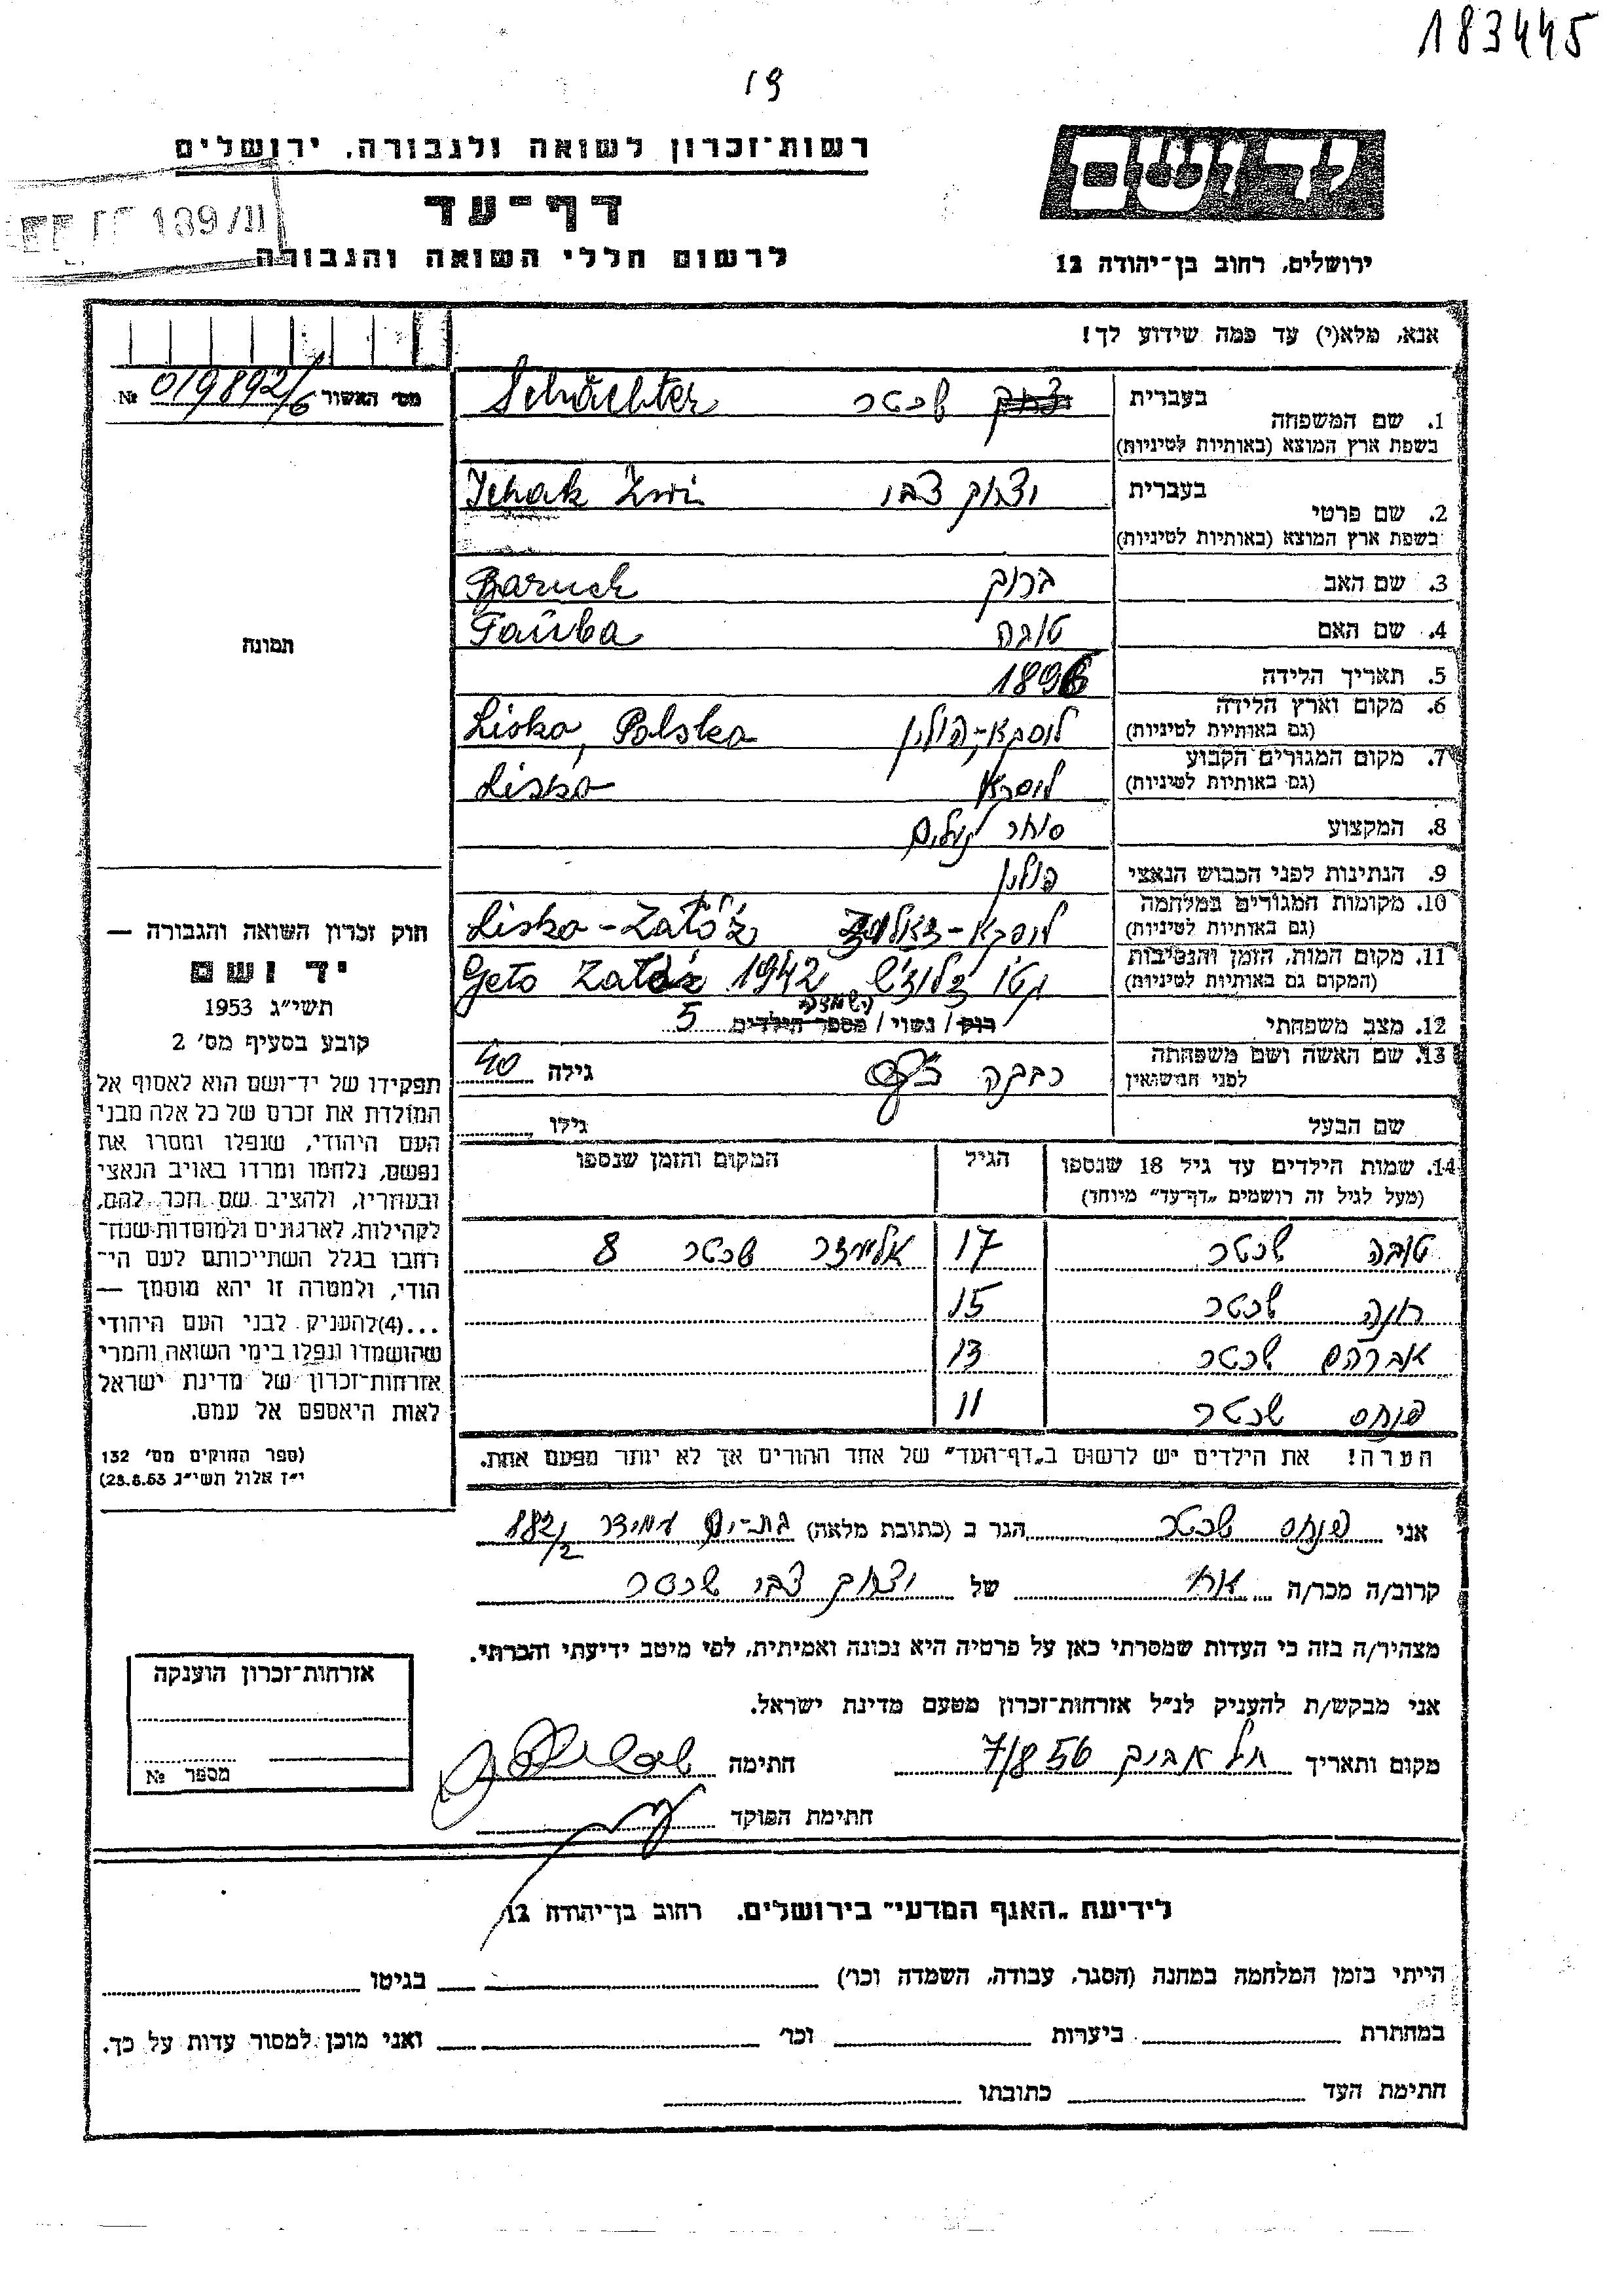 183445
19
רשות־זכרון לשואה ולגבורה, ירושלים
יד ושם
דף־עד
189/II
לרשום חללי השואה והגבורה
ירושלים, רחוב בן־יהודה 12
אנא, מלא(י) עד כמה שידוע לך!
מס׳ האשור 019892/6 №
בעברית שכטר Schächter
1. שם המשפחה
בשפת ארץ המוצא (באותיות לטיניות)
בעברית יצחק צבי Ichak Zwi
2. שם פרטי
בשפת ארץ המוצא (באותיות לטיניות)
3. שם האב ברוך Baruch
4. שם האם טובה Tauba
5. תאריך הלידה 1896
6. מקום וארץ הלידה ליסקא-פולין Lisko, Polska
(גם באותיות לטיניות)
7. מקום המגורים הקבוע ליסקא Lisko
(גם באותיות לטיניות)
8. המקצוע סוחר נעלים
9. הנתינות לפני הכבוש הנאצי פולין
10. מקומות המגורים במלחמה ליסקא- Lisko-Zatóż
(גם באותיות לטיניות)
11. מקום המות, הזמן והנסיבות גטו Geto Zatóż 1942
(המקום גם באותיות לטיניות) השמדה
12. מצב משפחתי רווק / נשוי / מספר הילדים 5
13. שם האשה ושם משפחתה רבקה גילה 40
לפני הנישואין
שם הבעל גילו
14. שמות הילדים עד גיל 18 שנספו הגיל המקום והזמן שנספו
(מעל לגיל זה רושמים „דף־עד״ מיוחד)
טובה שכטר 17 אליעזר שכטר 8
שכטר 15
אברהם שכטר 13
פנחס שכטר 11
הערה! את הילדים יש לרשום ב„דף־העד״ של אחד ההורים אך לא יותר מפעם אחת.
תמונה
חוק זכרון השואה והגבורה —
יד ושם
תשי״ג 1953
קובע בסעיף מס׳ 2
תפקידו של יד־ושם הוא לאסוף אל
המולדת את זכרם של כל אלה מבני
העם היהודי, שנפלו ומסרו את
נפשם, נלחמו ומרדו באויב הנאצי
ובעוזריו, ולהציב שם וזכר להם,
לקהילות, לארגונים ולמוסדות שנח־
רבו בגלל השתייכותם לעם הי־
הודי, ולמטרה זו יהא מוסמך —
...(4)להעניק לבני העם היהודי
שהושמדו ונפלו בימי השואה והמרי
אזרחות־זכרון של מדינת ישראל
לאות היאספם אל עמם.
(ספר החוקים מס׳ 132
י״ז אלול תשי״ג 28.8.53)
אני פנחס שכטר הגר ב (כתובת מלאה) בת-ים עמידר 182/2
קרוב/ה מכר/ה אח של יצחק צבי שכטר
מצהיר/ה בזה כי העדות שמסרתי כאן על פרטיה היא נכונה ואמיתית, לפי מיטב ידיעתי והכרתי.
אני מבקש/ת להעניק לנ״ל אזרחות־זכרון מטעם מדינת ישראל.
מקום ותאריך תל אביב 7/8 56 חתימה
חתימת הפוקד
אזרחות־זכרון הוענקה
מספר №
לידיעת „האגף המדעי״ בירושלים, רחוב בן־יהודה 12
הייתי בזמן המלחמה במחנה (הסגר, עבודה, השמדה וכו׳) בגיטו
במחתרת ביערות וכו׳ ואני מוכן למסור עדות על כך.
חתימת העד כתובתו